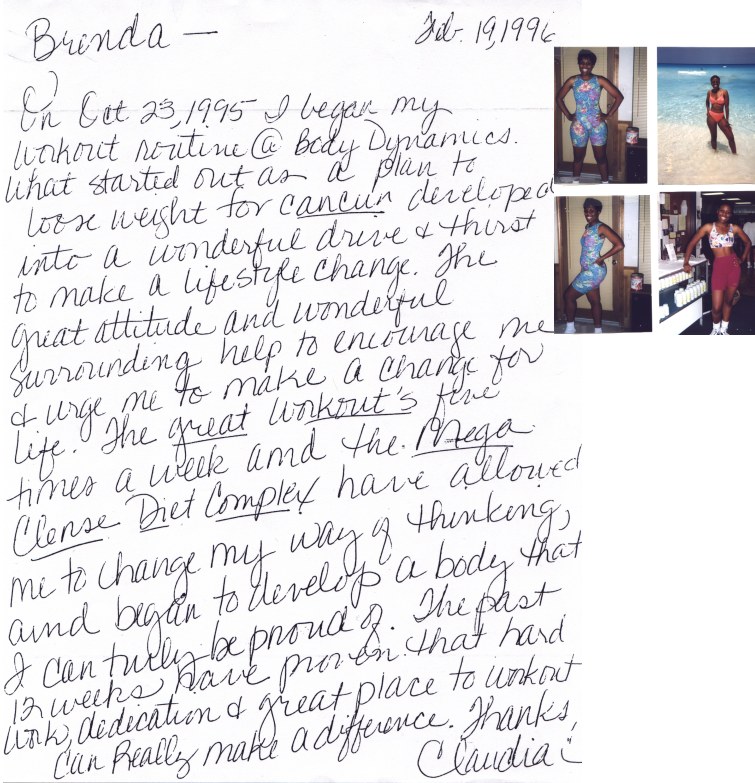 Brenda — Feb. 19, 1996
On Oct 23, 1995 I began my
workout routine @ Body Dynamics.
What started out as a plan to
loose weight for cancun developed
into a wonderful drive & thirst
to make a lifestyle change. The
great attitude and wonderful
surrounding help to encourage me
& urge me to make a change for
life. The great workout's five
times a week and the Mega
Clense Diet Complex have allowed
me to change my way of thinking,
and began to develop a body that
I can turly be proud of. The past
12 weeks have proven that hard
work, dedication & great place to workout
can Really make a difference. Thanks,
Claudia